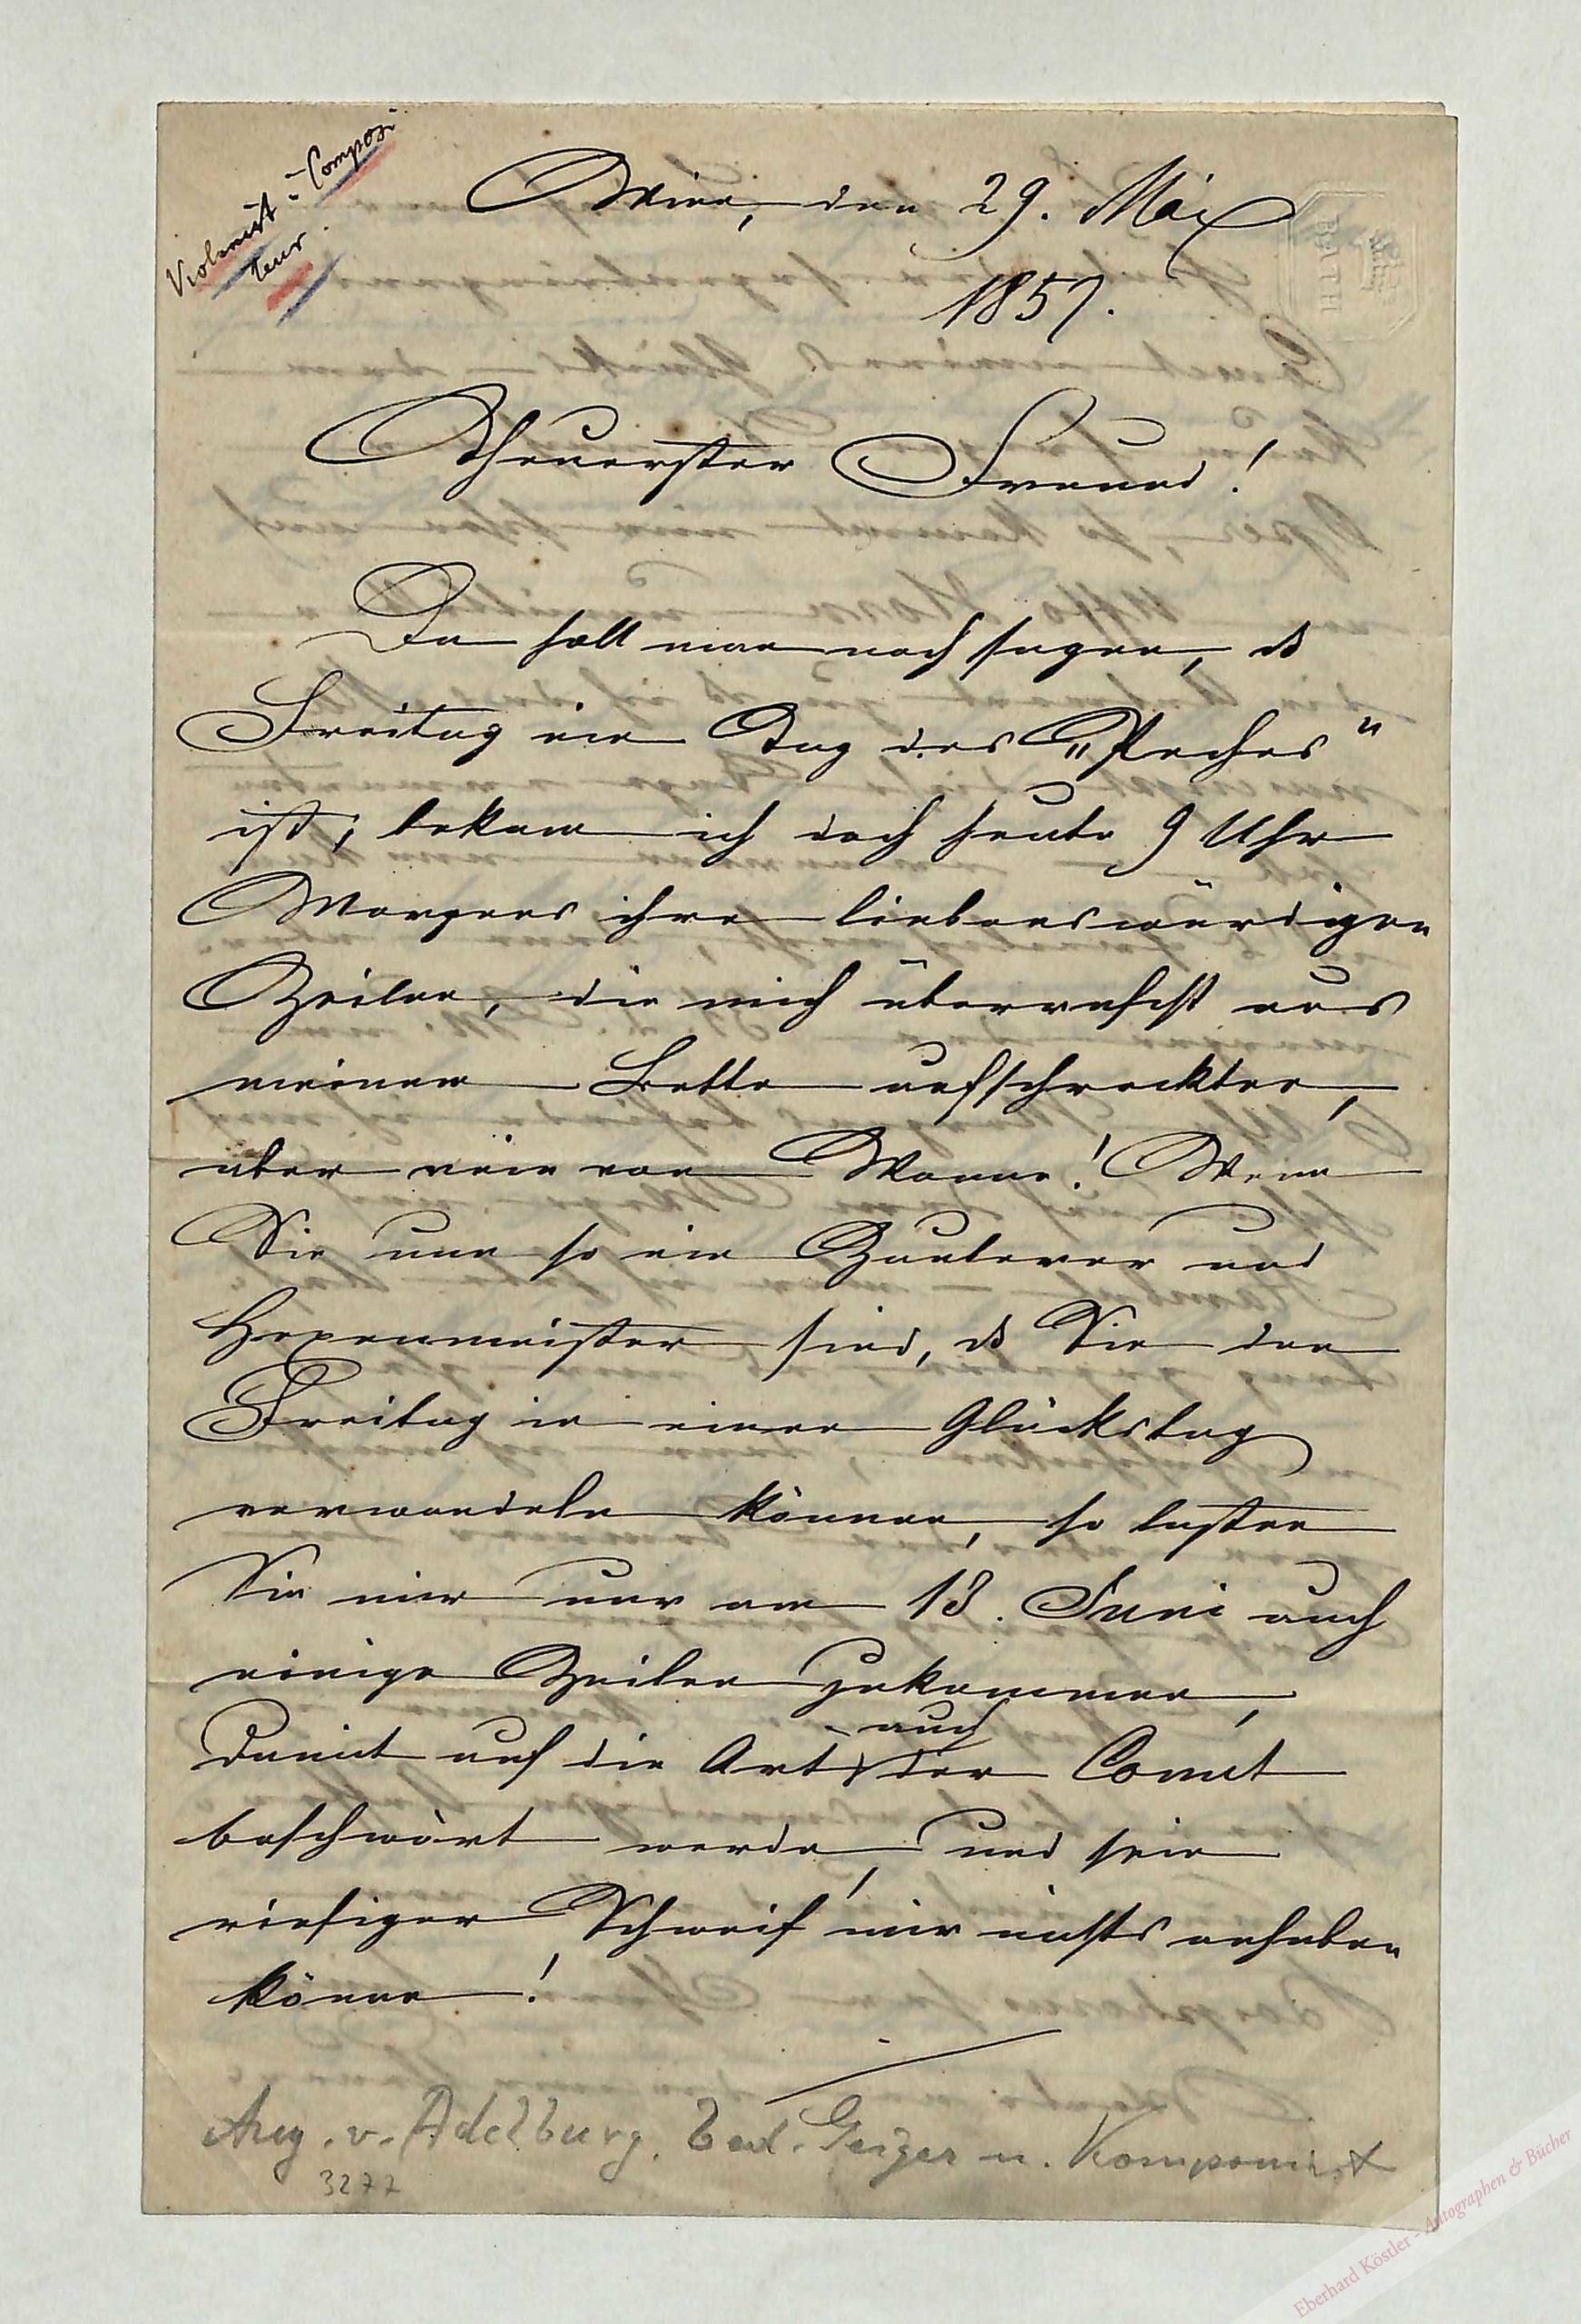 Violinist - Composi
teur
Wien, den 29. Mai
1857.
BATH
Theuerster Freund!
Da soll man noch sagen, ds
Freitag ein Tag des „Peches"
ist; bekam ich doch heute 9 Uhr
Morgens ihre liebenswürdigen
Zeilen, die mich überrascht aus
meinem Bette aufschreckten,
aber nein vor Wonne! Wenn
Sie nun so ein Zauberer und
Hexenmeister sind, ds Sie den
Freitag in einen Glückstag
verwandeln können, so lassen
Sie mir nur am 13. Juni auch
einige Zeilen zukommen,
damit auf die Art auch der Comet
beschwört werde, und sein
riesiger Schweif mir nichts anhaben
könne!
Aug. v. Adelburg, bed. Geiger u. Komponist
3277
Eberhard Köstler - Autographen & Bücher